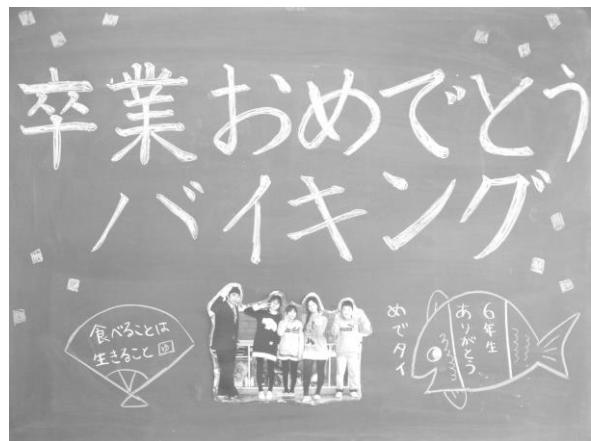 卒業おめでとう
バイキング
食べることは
生きること ゆ
めでタイ
6年生
ありがとう